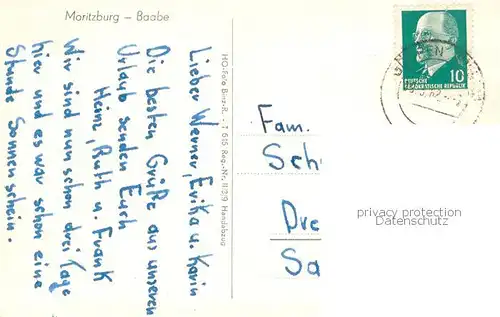 Moritzburg – Baabe
Lieber Werner, Erika u. Karin
Die besten Grüße aus unseren
Urlaub senden Euch
Heinz, Ruth u. Frank
Wir sind nun schon drei Tage
hier und es war schon eine
Stunde Sonnenschein.
HO-Foto Bergen-R.
Handabzug
10
DEUTSCHE
DEMOKRATISCHE REPUBLIK
Fam.
Sch
Dre
Sa
privacy protection
Datenschutz